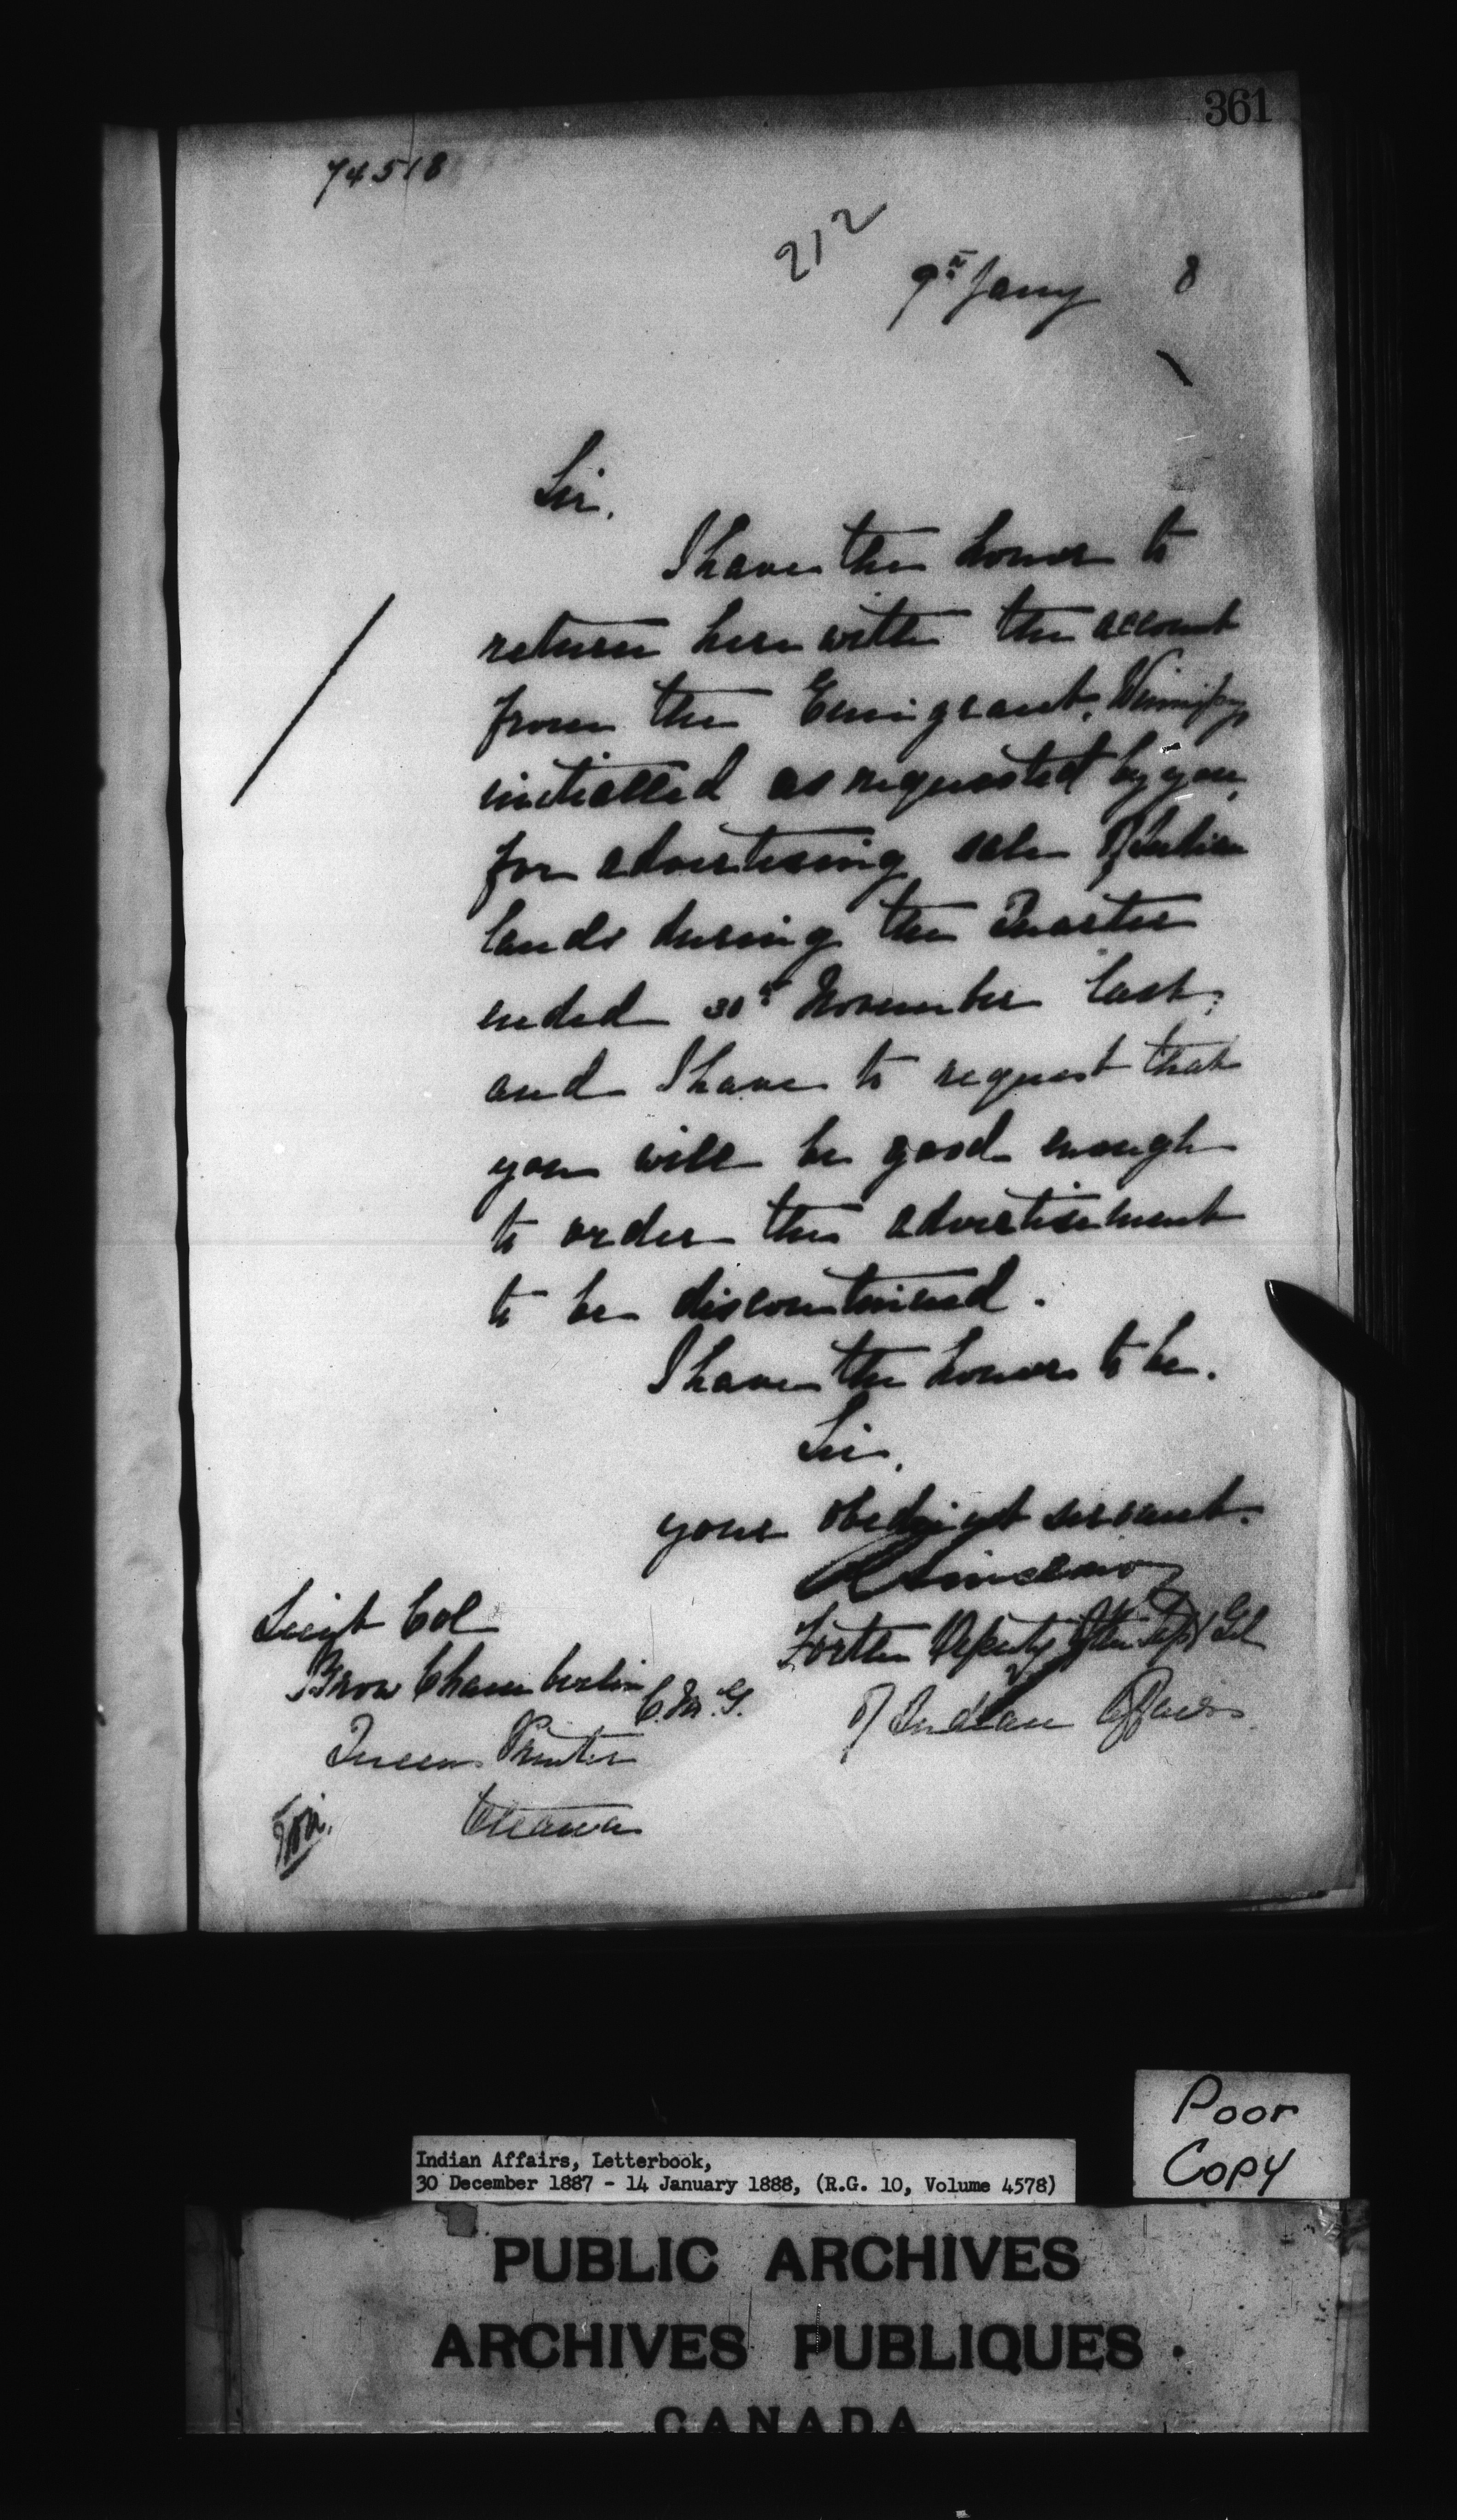 361
74518
212
9th Jany 8
Sir,
I have the honor to
return herewith the account
from the Emigrant, Winnipeg
initialled as requested by you,
for advertising sale of Indian
lands during the Quarter
ended 30th November last,
and I have to request that
you will be good enough
to order the advertisement
to be discontinued.
I have the honor to be,
Sir,
your obedient servant.
R Sinclair
For the Deputy of the Supt Genl
of Indian Affairs
Lieut Col
Brown Chamberlin C.M.G.
Queens Printer
Ottawa
Poor
Copy
Indian Affairs, Letterbook,
30 December 1887 - 14 January 1888, (R.G. 10, Volume 4578)
PUBLIC ARCHIVES
ARCHIVES PUBLIQUES
CANADA